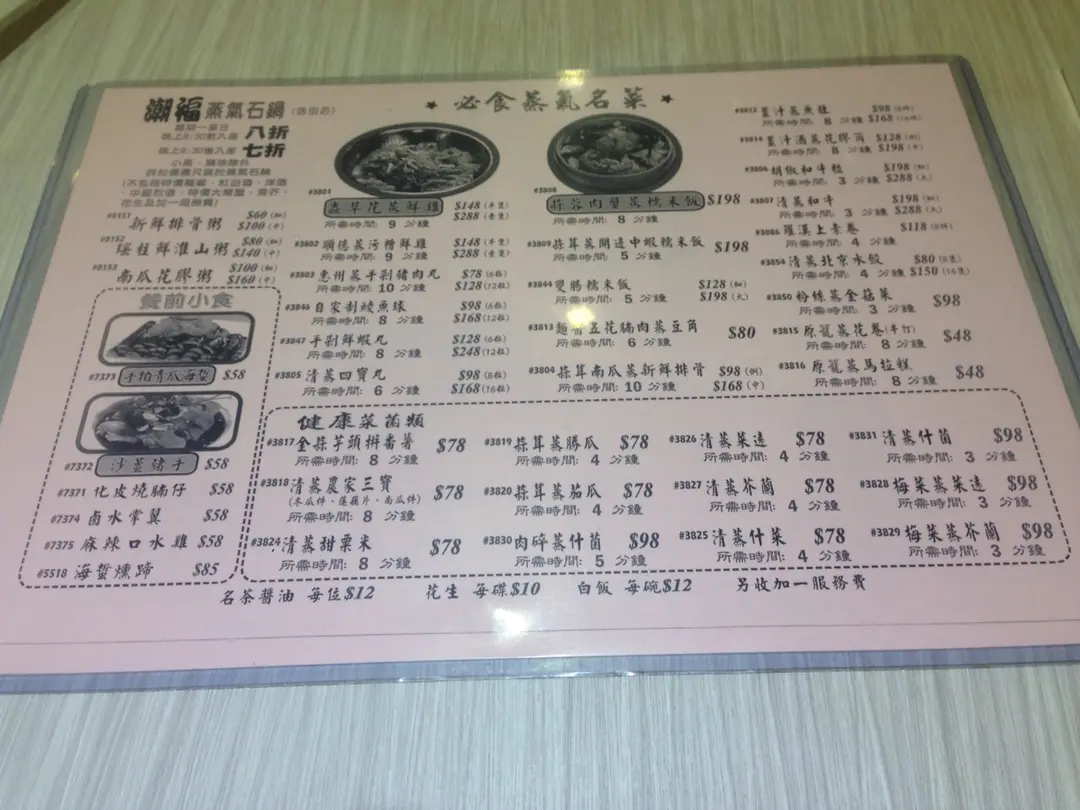 潮福 蒸氣石鍋
星期一至日
晚上8:30前入座 八折
晚上8:30後入座 七折
#3151 新鮮排骨粥 $60(細) $100(中)
#3152 瑤柱鮮淮山粥 $80(細) $140(中)
#3153 南瓜花膠粥 $100(細) $160(中)
餐前小食
#7373 手拍青瓜海蜇 $58
#7372 沙薑豬手 $58
#7371 化皮燒腩仔 $58
#7374 鹵水掌翼 $58
#7375 麻辣口水雞 $58
#5518 海蜇燻蹄 $85
★ 必食蒸氣名菜 ★
#3801
蟲草花蒸鮮雞 $148(半隻) $288(壹隻)
所需時間: 9 分鐘
#3802 順德蒸污糟鮮雞 $148(半隻) $288(壹隻)
所需時間: 9 分鐘
#3803 惠州蒸手剁豬肉丸 $78(6粒) $128(12粒)
所需時間: 10 分鐘
#3846 自家制鯪魚球 $98(6粒) $168(12粒)
所需時間: 8 分鐘
#3847 手剁鮮蝦丸 $128(6粒) $248(12粒)
所需時間: 8 分鐘
#3805 清蒸四寶丸 $98(8粒) $168(16粒)
所需時間: 6 分鐘
#3808
蒜蓉肉蟹蒸糯米飯 $198
所需時間: 8 分鐘
#3809 蒜茸蒸開邊中蝦糯米飯 $198
所需時間: 5 分鐘
#3844 雙腸糯米飯 $128(細) $198(大)
所需時間: 5 分鐘
#3813 麵醬五花腩肉蒸豆角 $80
所需時間: 6 分鐘
#3804 蒜茸南瓜蒸新鮮排骨 $98(例) $168(中)
所需時間: 10 分鐘
#3812 薑汁蒸魚 $98 $168
所需時間: 8 分鐘
#3814 薑汁酒蒸花膠筒 $128(例) $198(中)
所需時間: 8 分鐘
#3806 胡椒和牛粒 $198(細) $288(大)
所需時間: 3 分鐘
#3807 清蒸和牛 $198(細) $288(大)
所需時間: 3 分鐘
羅漢上素卷 $118
所需時間: 4 分鐘
#3854 清蒸北京水餃 $80(8隻) $150(16隻)
所需時間: 4 分鐘
#3850 粉絲蒸金菇菜 $98
所需時間: 3 分鐘
#3815 原籠蒸花卷(半打) $48
所需時間: 8 分鐘
#3816 原籠蒸馬拉糕 $48
所需時間: 8 分鐘
健康菜菌類
#3817 金蒜芋頭拼番薯 $78
所需時間: 8 分鐘
#3818 清蒸農家三寶 $78
(冬瓜件、蓮藕片、南瓜件)
所需時間: 8 分鐘
#3824 清蒸甜粟米 $78
所需時間: 8 分鐘
#3819 蒜茸蒸勝瓜 $78
所需時間: 4 分鐘
#3820 蒜茸蒸茄瓜 $78
所需時間: 4 分鐘
#3830 肉碎蒸什菌 $98
所需時間: 5 分鐘
#3826 清蒸菜遠 $78
所需時間: 4 分鐘
#3827 清蒸芥蘭 $78
所需時間: 4 分鐘
#3825 清蒸什菜 $78
所需時間: 4 分鐘
#3831 清蒸什菌 $98
所需時間: 3 分鐘
#3828 梅菜蒸菜遠 $98
所需時間: 3 分鐘
#3829 梅菜蒸芥蘭 $98
所需時間: 3 分鐘
名茶醬油 每位$12 花生 每碟$10 白飯 每碗$12 另收加一服務費